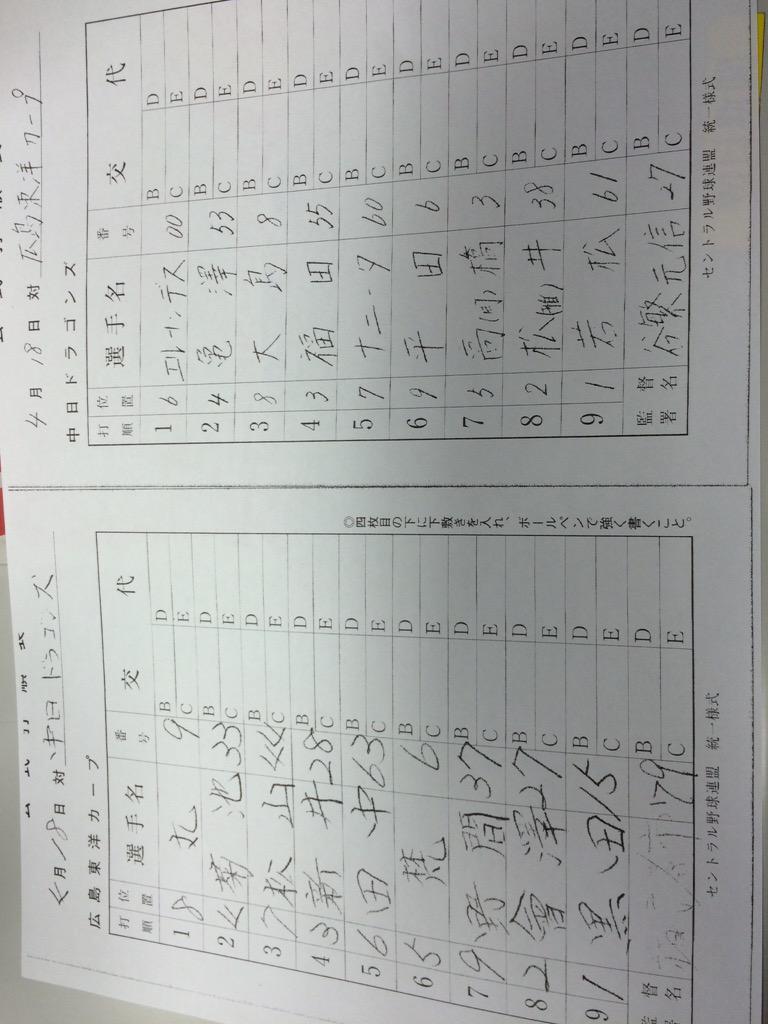 4月18日 対 広島東洋カープ
中日ドラゴンズ
打順 位置 選手名 番号 交代
1 6 エルナンデス 00 B C D E
2 4 亀澤 53 B C D E
3 8 大島 8 B C D E
4 3 福田 55 B C D E
5 7 ナニータ 60 B C D E
6 9 平田 6 B C D E
7 5 高(周)橋 3 B C D E
8 2 松(雅)井 38 B C D E
9 1 若松 61 B C D E
監督署名 谷繁元信 27 B C D E
セントラル野球連盟 統一様式
◎四枚目の下に下敷きを入れ、ボールペンで強く書くこと。
公式打順表
4月18日 対 中日ドラゴンズ
広島東洋カープ
打順 位置 選手名 番号 交代
1 8 丸 9 B C D E
2 4 菊池 33 B C D E
3 7 松山 44 B C D E
4 3 新井 28 B C D E
5 6 田中 63 B C D E
6 5 梵 6 B C D E
7 9 野間 37 B C D E
8 2 會澤 27 B C D E
9 1 黒田 15 B C D E
監督署名 79 B C D E
セントラル野球連盟 統一様式